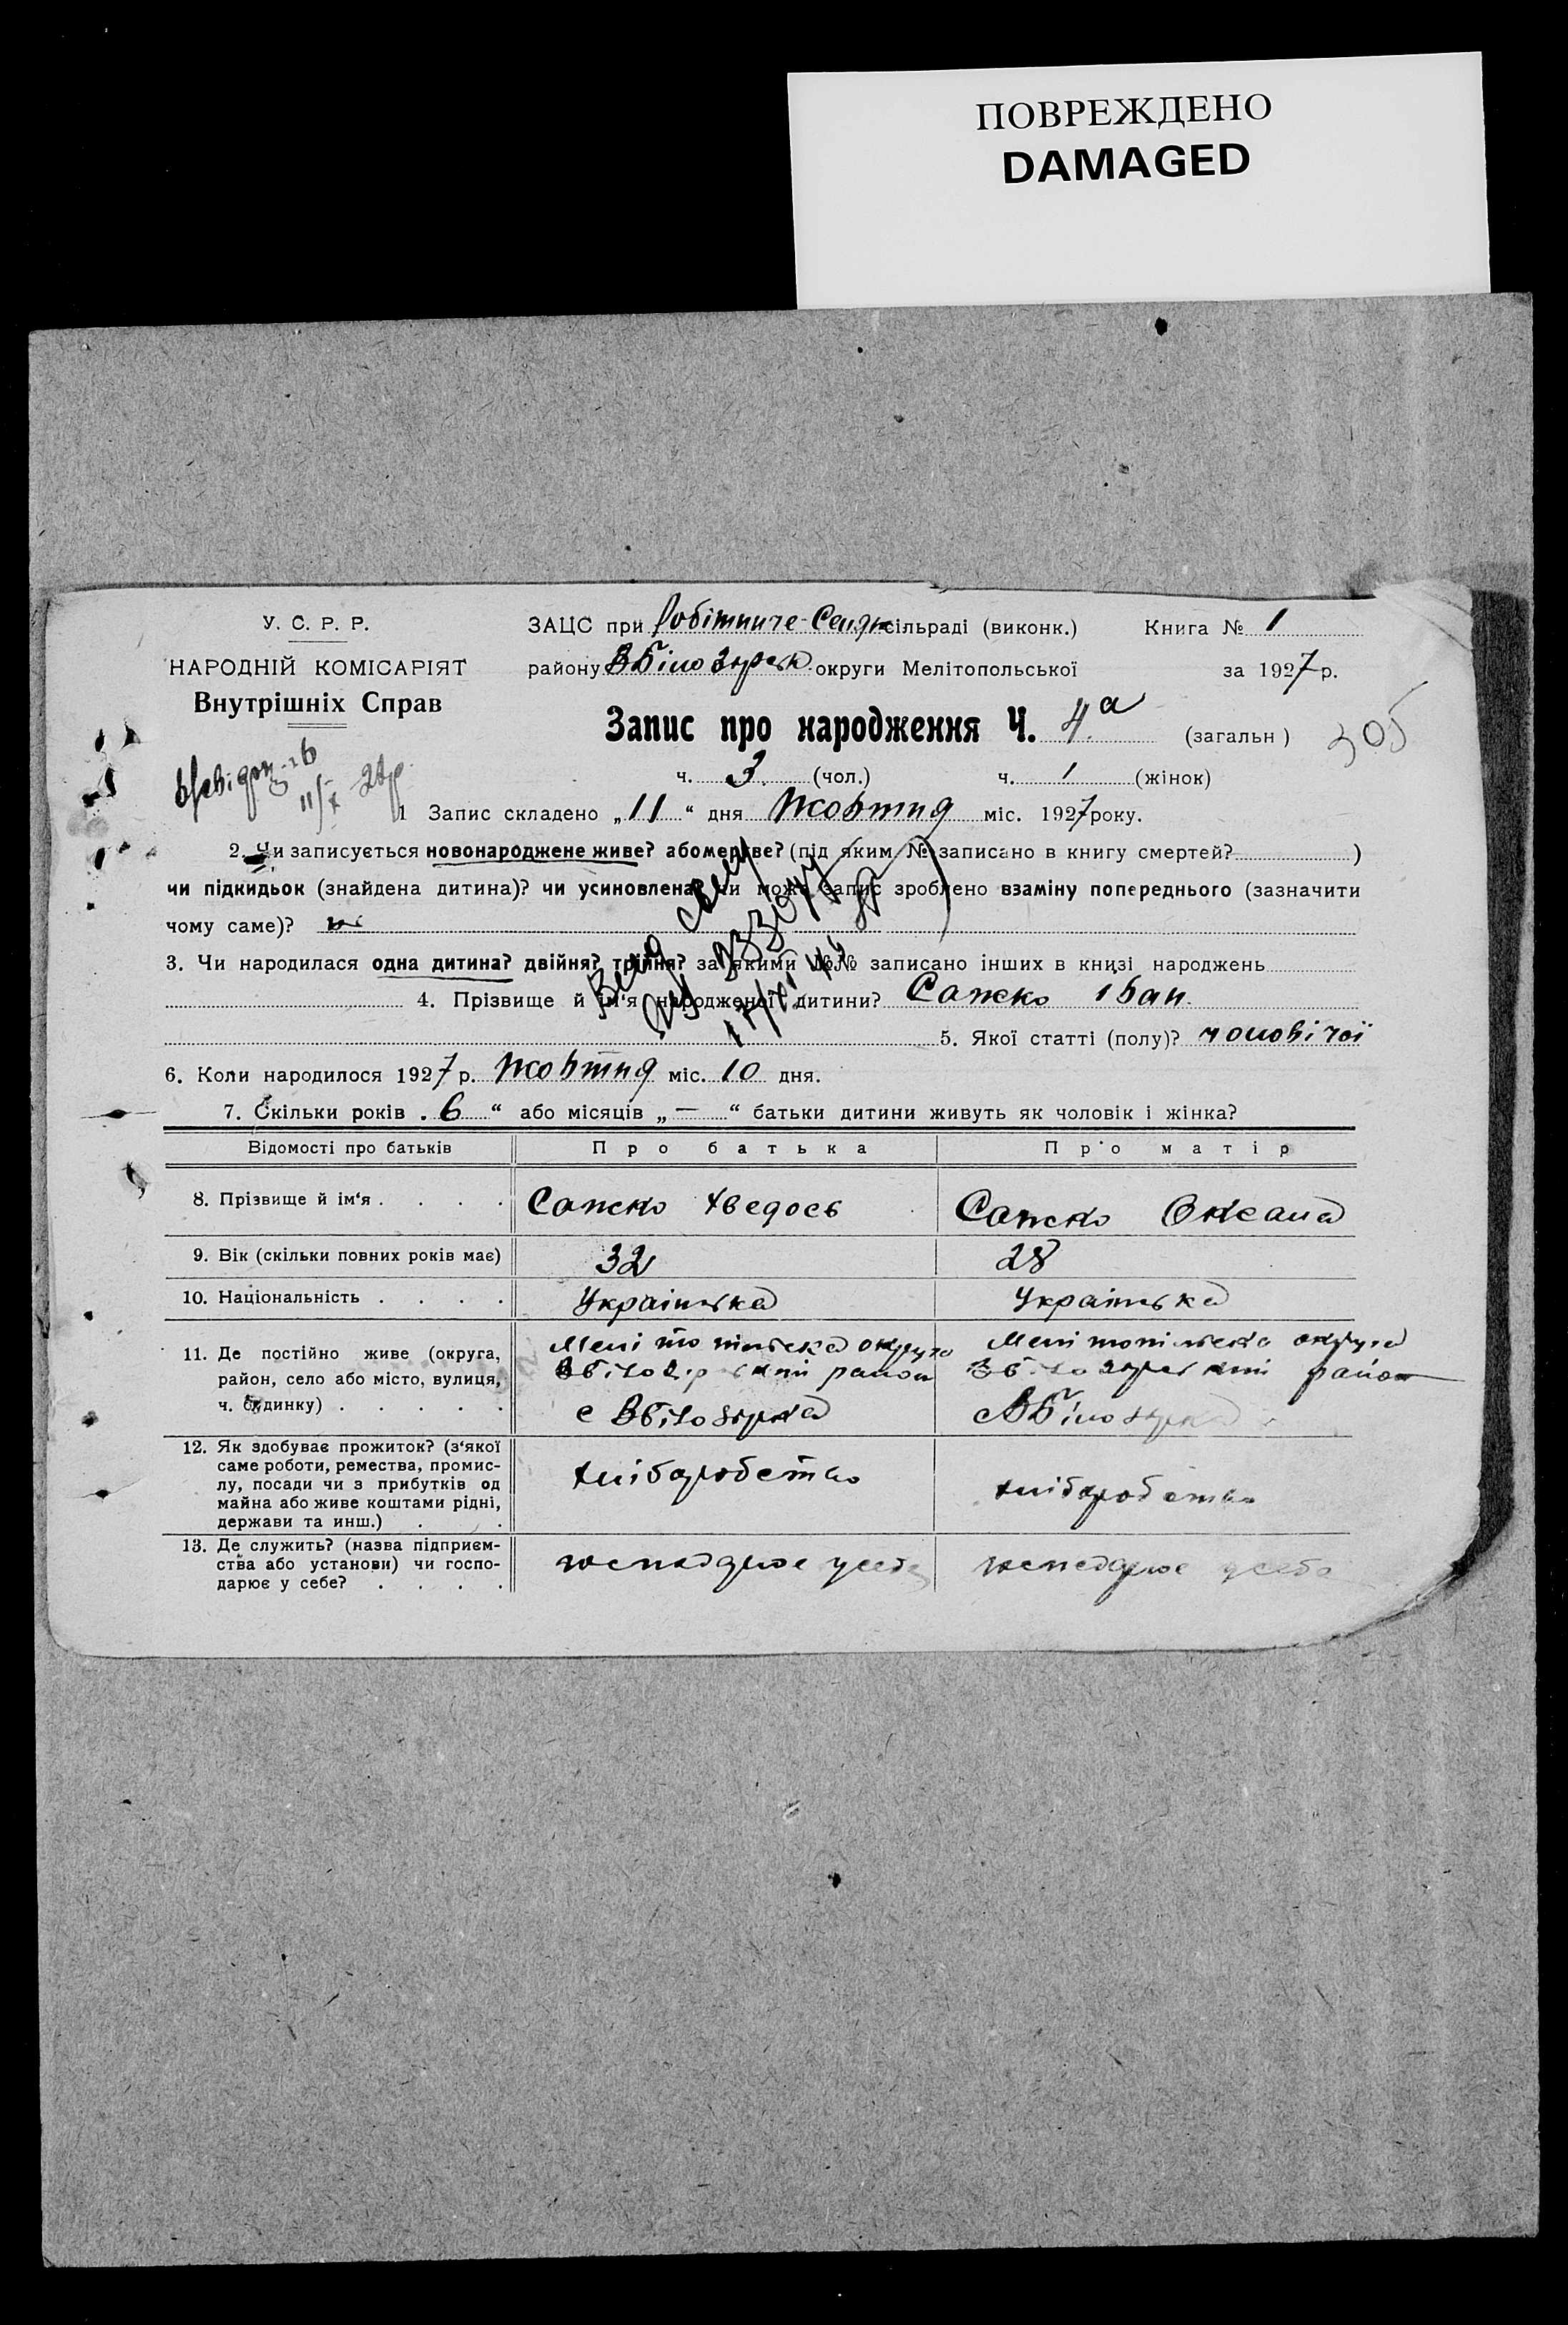 ПОВРЕЖДЕНО
DAMAGED
У. С. Р. Р.
НАРОДНІЙ КОМІСАРІЯТ
Внутрішніх Справ
ЗАЦС при Робітниче-Селян сільраді (виконк.) Книга № 1
району ВБілозірськ округи Мелітопольської за 1927 р.
Запис про народження Ч. 4а (загальн)
305
ч. 3 (чол.) ч. 1 (жінок)
1 Запис складено „11“ дня Жовтня міс. 1927 року.
2. Чи записується новонароджене живе? або мертве? (під яким № записано в книгу смертей? )
чи підкидьок (знайдена дитина)? чи усиновлена? чи може запис зроблено взаміну попереднього (зазначити
чому саме)?
3. Чи народилася одна дитина? двійня? трійня? за якими №№ записано інших в книзі народжень
4. Прізвище й ім‘я народженої дитини? Сапско Іван
5. Якої статті (полу)? чоловічої
6. Коли народилося 1927 р. Жовтня міс. 10 дня.
7. Скільки років „6“ або місяців „—“ батьки дитини живуть як чоловік і жінка?
Відомості про батьків Про батька Про матір
8. Прізвище й ім‘я . . . . Сапско Хведось Сапско Оксана
9. Вік (скільки повних років має) 32 28
10. Національність . . . . Українська Українська
11. Де постійно живе (округа,
район, село або місто, вулиця,
ч. будинку) . . . . .
Мелітопільська округа
ВБілозірський район
с ВБілозірка
Мелітопільська округа
ВБілозірський район
с ВБілозірка
12. Як здобуває прожиток? (з‘якої
саме роботи, ремества, промис-
лу, посади чи з прибутків од
майна або живе коштами рідні,
держави та инш.) . .
хліборобство
хліборобство
13. Де служить? (назва підприєм-
ства або установи) чи госпо-
дарює у себе? . . . .
господарює у себе
господарює у себе